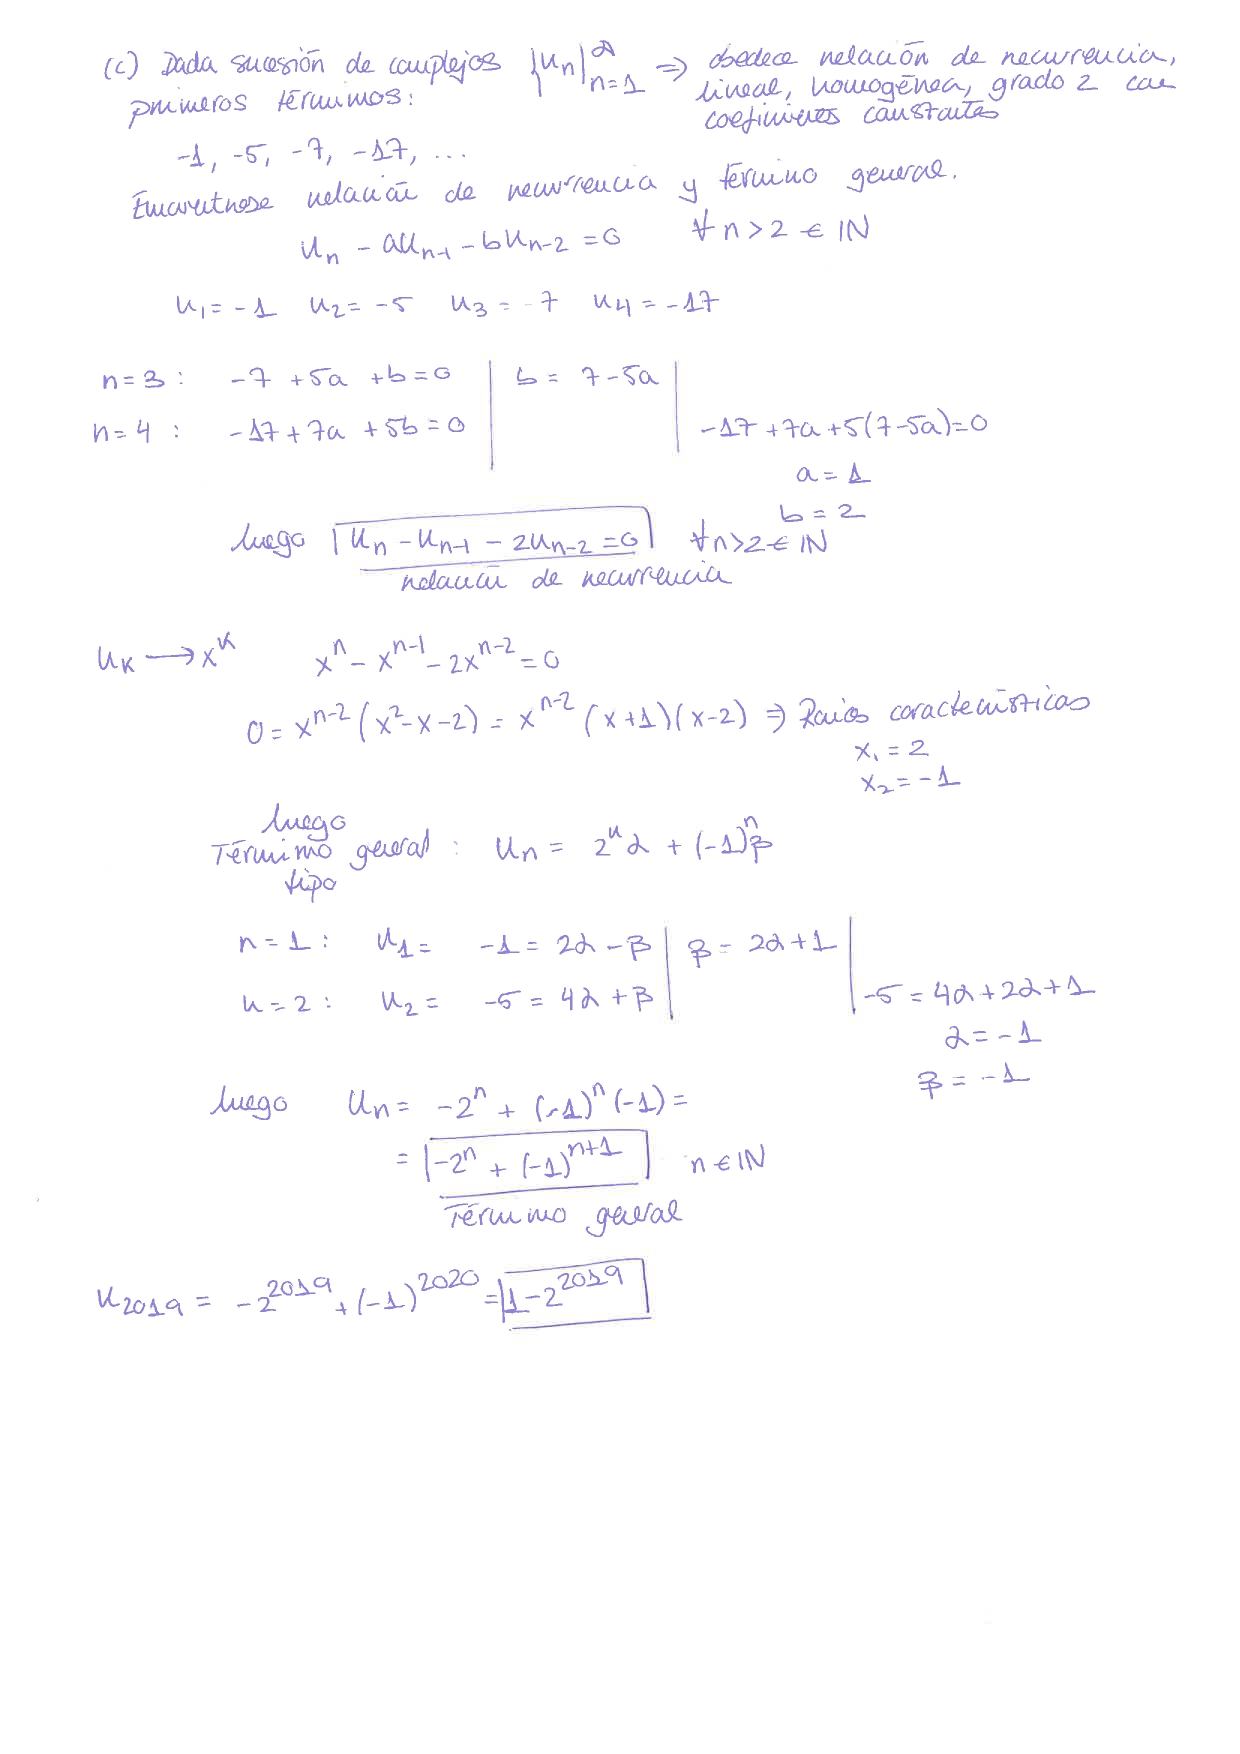 (c) Dada sucesión de complejos {u_n}_{n=1}^∞ ⇒ obedece relación de recurrencia,
primeros términos: lineal, homogénea, grado 2 con
coeficientes constantes
-1, -5, -7, -17, ...
Encuéntrese relación de recurrencia y término general.
u_n - au_{n-1} - bu_{n-2} = 0 ∀ n > 2 ∈ IN
u_1 = -1 u_2 = -5 u_3 = -7 u_4 = -17
n = 3 : -7 + 5a + b = 0 | b = 7 - 5a |
n = 4 : -17 + 7a + 5b = 0 | | -17 + 7a + 5(7-5a) = 0
a = 1
b = 2
luego u_n - u_{n-1} - 2u_{n-2} = 0 ∀ n > 2 ∈ IN
relación de recurrencia
u_k → x^k x^n - x^{n-1} - 2x^{n-2} = 0
0 = x^{n-2} (x^2 - x - 2) = x^{n-2} (x+1)(x-2) ⇒ Raíces características
x_1 = 2
x_2 = -1
luego
Término general : u_n = 2^n α + (-1)^n β
tipo
n = 1 : u_1 = -1 = 2α - β | β = 2α + 1 |
n = 2 : u_2 = -5 = 4α + β | | -5 = 4α + 2α + 1
α = -1
β = -1
luego u_n = -2^n + (-1)^n (-1) =
= -2^n + (-1)^{n+1} n ∈ IN
Término general
u_{2019} = -2^{2019} + (-1)^{2020} = 1 - 2^{2019}